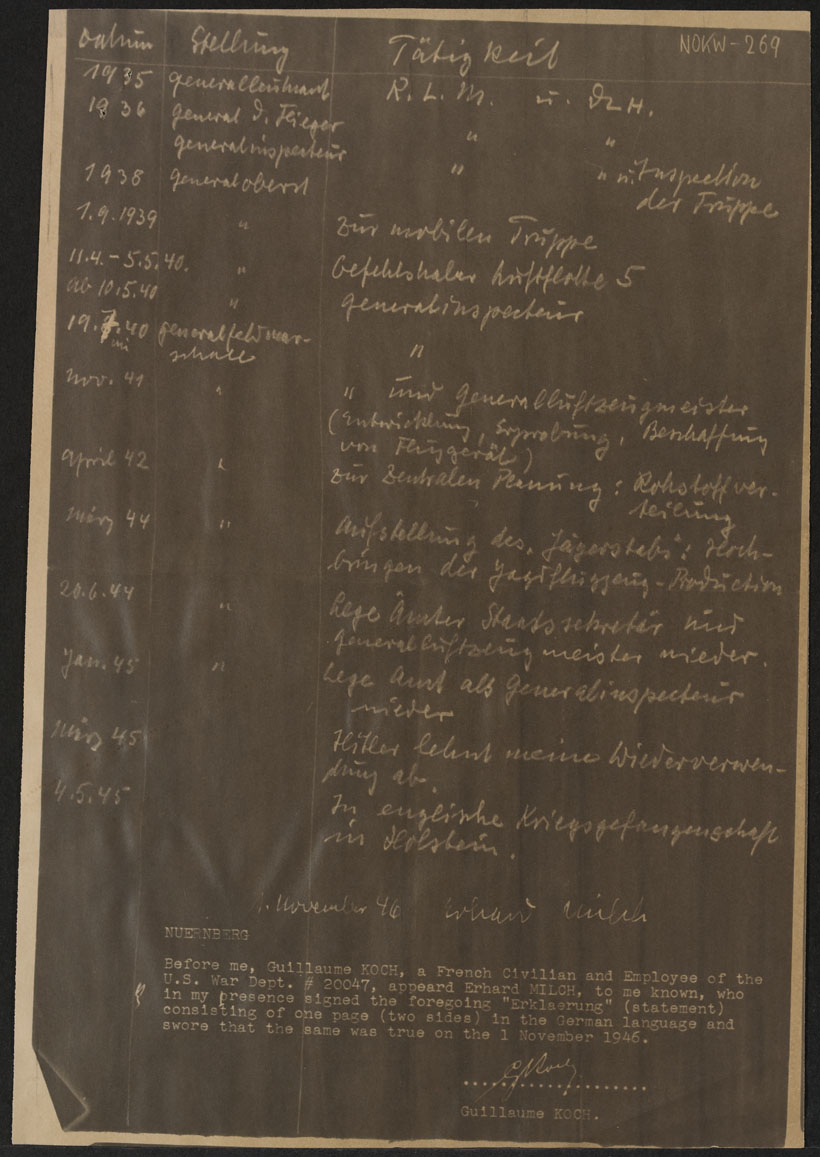 NOKW-269
Datum Stellung Tätigkeit
1935 Generalleutnant R.L.M. u. DLH.
1936 General d. Flieger " "
Generalinspecteur
1938 Generaloberst " " u. Inspection
der Truppe
1.9.1939 " zur mobilen Truppe
11.4.-5.5.40. " Befehlshaber Luftflotte 5
ab 10.5.40 " Generalinspecteur
19.7.40 Generalfeldmar- "
mi schall
Nov. 41 " " und Generalluftzeugmeister
(Entwicklung, Erprobung, Beschaffung
von Fluggerät)
April 42 " zur Zentralen Planung: Rohstoffver-
teilung
März 44 " Aufstellung des "Jägerstabs": Hoch-
bringen der Jagdflugzeug-Production
20.6.44 " Lege Ämter Staatssekretär und
Generalluftzeugmeister nieder.
Jan. 45 " Lege Amt als Generalinspecteur
nieder
März 45 Hitler lehnt meine Wiederverwen-
dung ab.
4.5.45 In englische Kriegsgefangenschaft
in Holstein.
1. November 46 Erhard Milch
NUERNBERG
Before me, Guillaume KOCH, a French Civilian and Employee of the
U.S. War Dept. # 20047, appeard Erhard MILCH, to me known, who
in my presence signed the foregoing "Erklaerung" (statement)
consisting of one page (two sides) in the German language and
swore that the same was true on the 1 November 1946.
GKoch
....................
Guillaume KOCH.